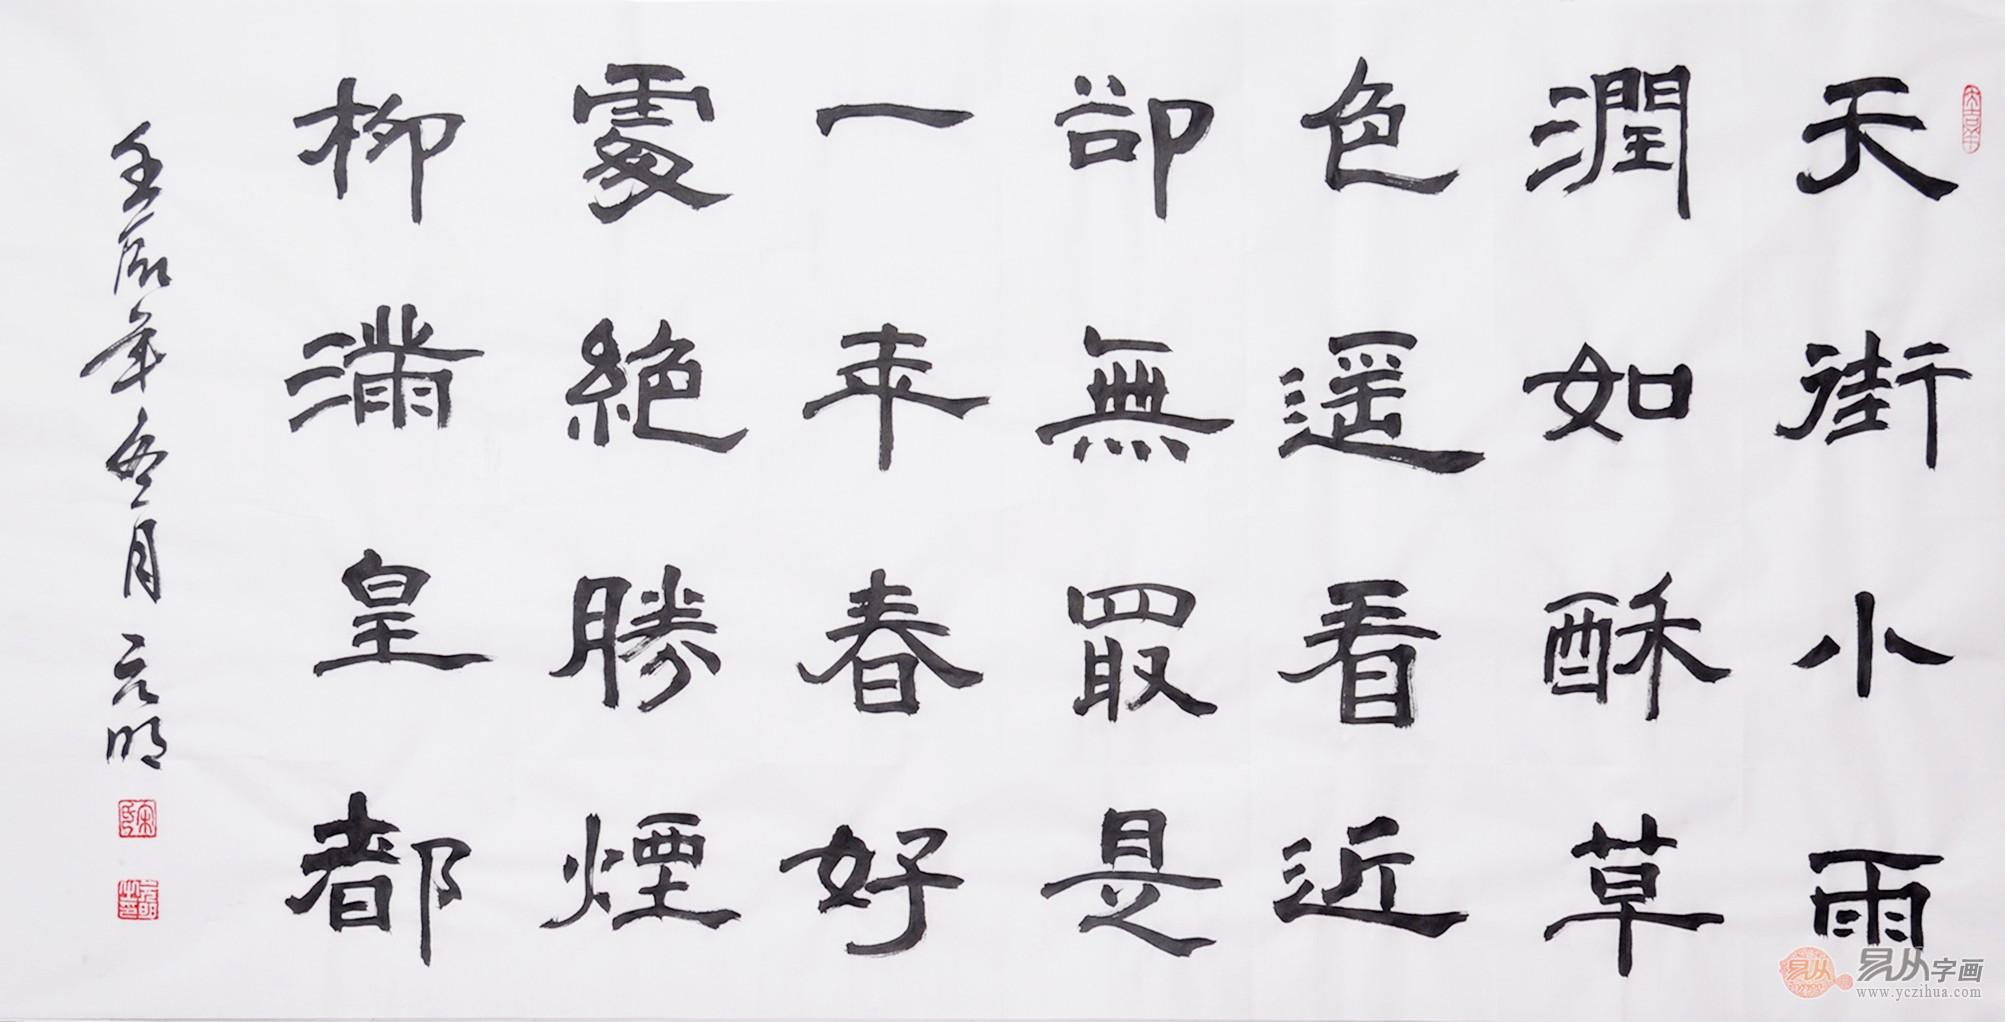 天街小雨
潤如酥草
色遥看近
卻無最是
一年春好
處絕勝煙
柳滿皇都
壬辰年冬月 元明
易从
易从字画
www.yczihua.com